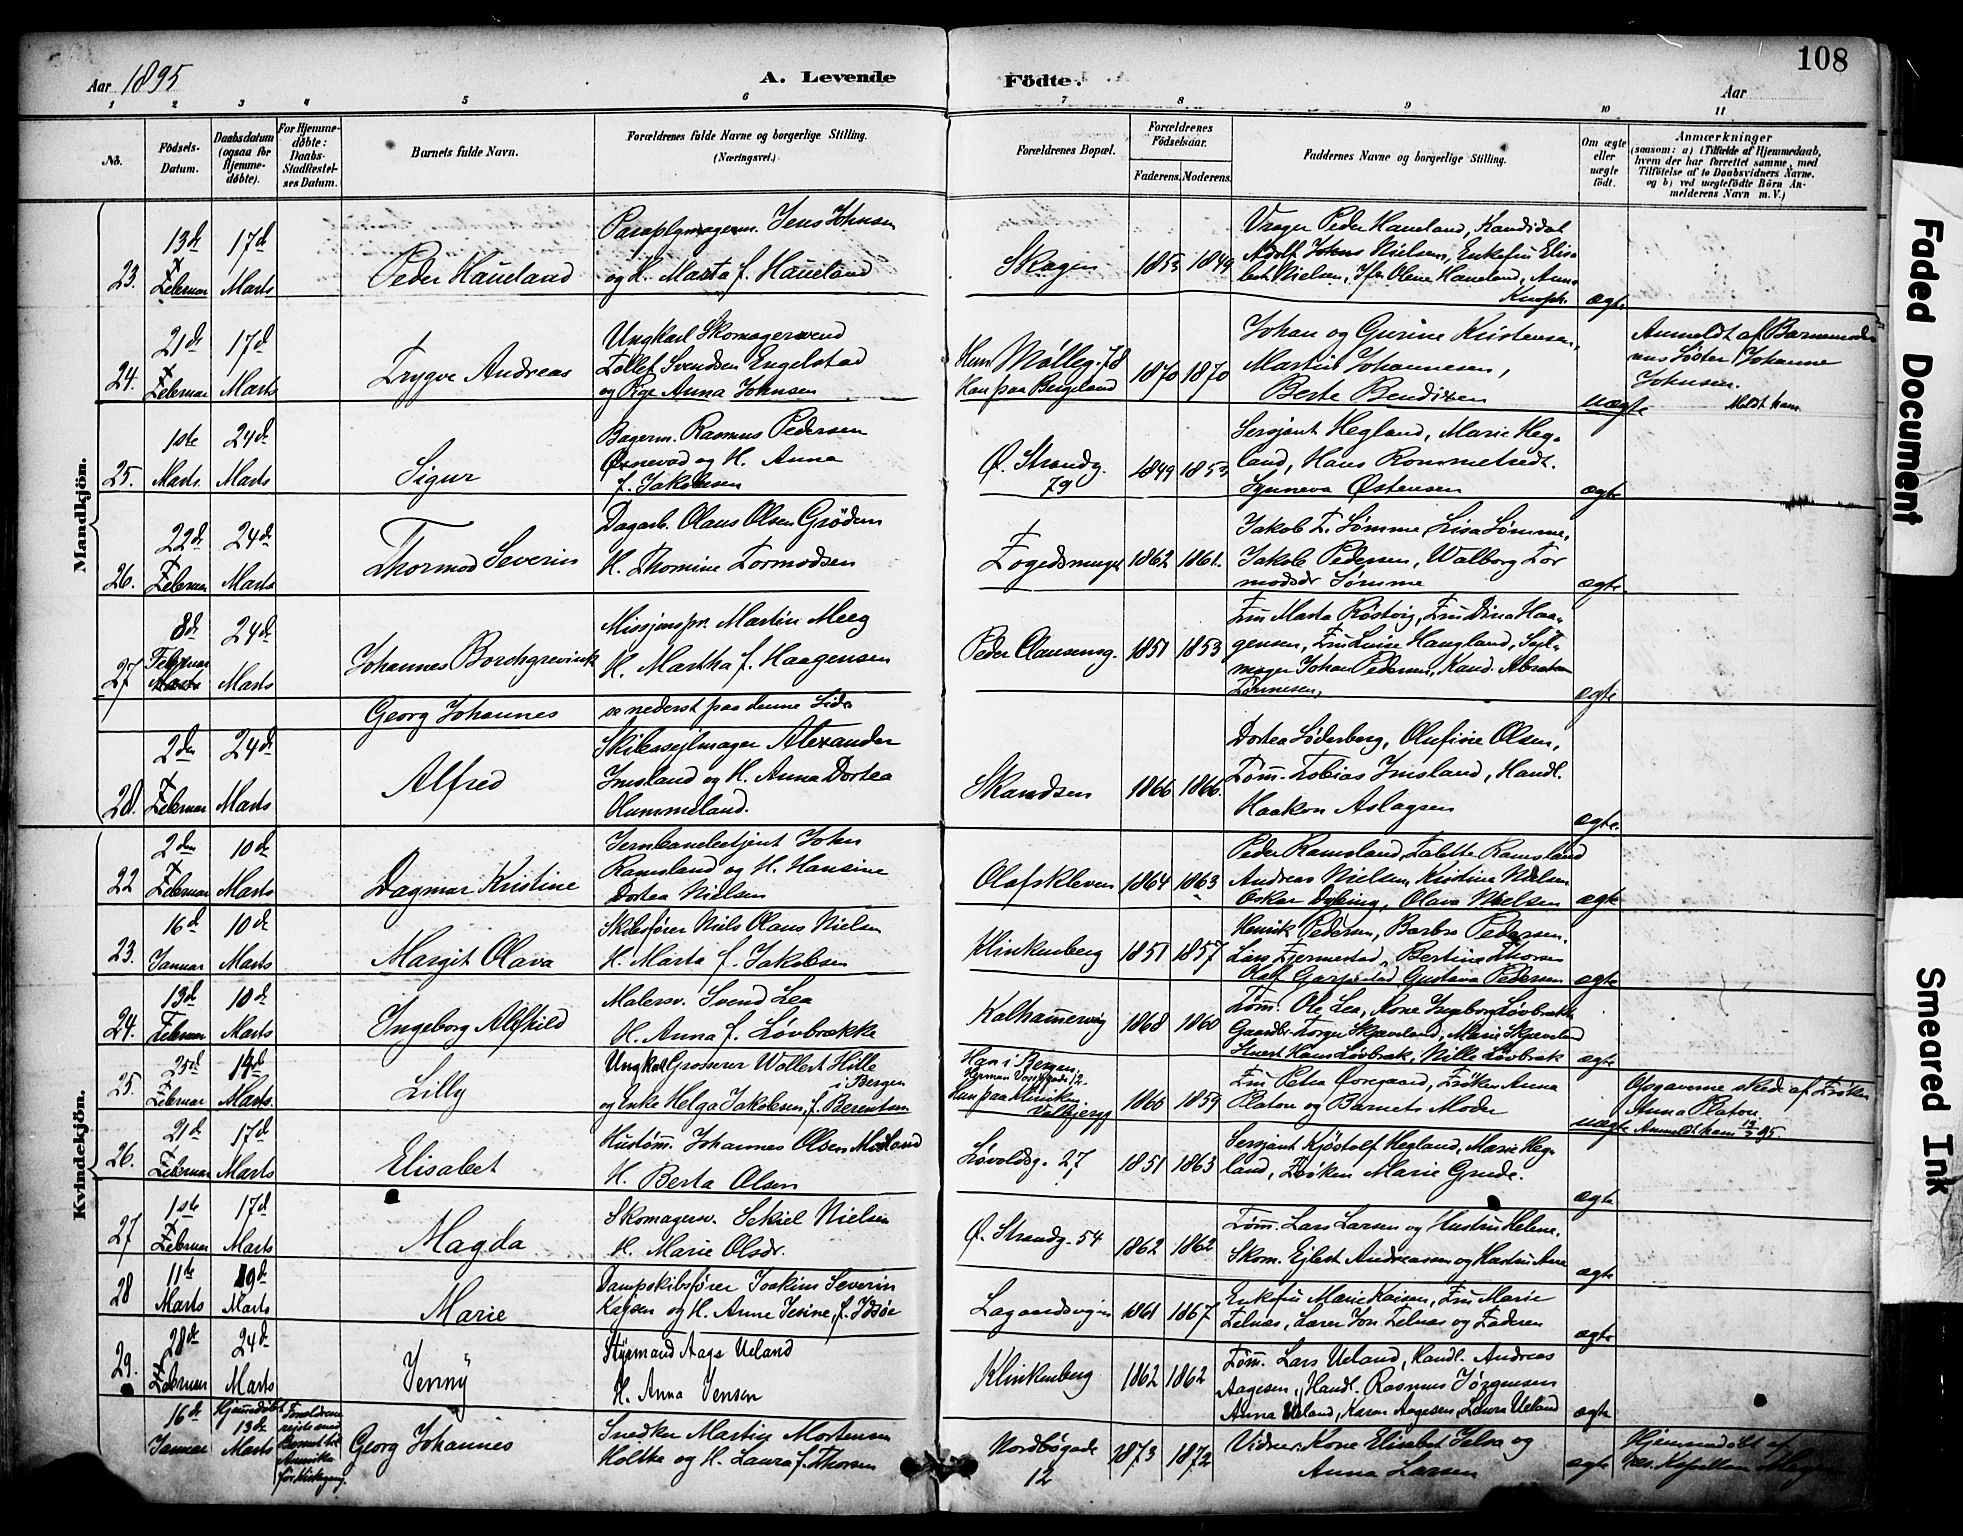 108
Aar 1895
A. Levende
Födte.
Aar
1 2 3 4 5 6 7 8 9 10 11
No.
Födsels-
Datum.
Daabsdatum
(ogsaa for
Hjemme-
döbte).
For Hjemme-
döbte:
Daabs-
Stadfæstel-
ses Datum.
Barnets fulde Navn.
Forældrenes fulde Navne og borgerlige Stilling.
(Næringsvei.)
Forældrenes Bopæl.
Forældrenes
Födselsaar.
Faderens. Moderens.
Faddernes Navne og borgerlige Stilling.
Om ægte
eller
uægte
födt.
Anmærkninger
(saasom: a) i Tilfælde af Hjemmedaab,
hvem der har forrettet samme, med
Tilföielse af to Daabsvidners Navne.
og b) ved uægtefödte Börn An-
melderens Navn m. V.)
Mandkjön.
23. 13de Februar 17de Marts
Peder Haueland
Paraplymagerm. Jens Johnsen
og H. Marta f. Haueland
Skagen
1853 1849
Vrager Peder Haueland, Kandidat
Adolf Nielsen, Enkefru Elisa-
bert Nielsen, Olene Haueland, Anna
ægte
24. 21de Februar 17de Marts
Trygve Andreas
Ungkarl Skomagersvend
Tollef Svendsen Engelstad
og Pige Anna Johnsen
Hun Mølleg. 78
Han paa Bergeland
1870 1870
Johan og Gurine Kristensen,
Martin Johannesen,
Berte Bendixen
uægte
Anmeldt af Barnemode-
rens Søster Johanne
Johnsen.
Meldt ham
25. 1ste Marts. 24de Marts
Sigur
Bagerm. Rasmus Pedersen
Øxnevad og H. Anna
f. Jakobsen
Ø. Strandg.
79
1849 1853
Sersjant Hegland, Marie Heg-
land, Hans Rommetvedt.
Synneva Østensen
ægte
26. 22de Februar 24de Marts
Thormod Severin
Dagarb. Olaus Olsen Grødem
H. Thomine Tormodsen
Fogedsmuget
1862 1861.
Jakob T. Sømme, Lisa Sømme,
Jakob Pedersen, Walborg Tor
modsdr Sømme
ægte
27 8de Februar 24de Marts
Johannes Borchgrevink
Missjonspr. Martin Meeg
H. Martha f. Haagensen
Peder Clausensg.
1851 1853
Fru Marta Røstvig, Fru Dina Haa-
gensen, Fru Luise Haugland, Sejl-
mager Johan Pedersen, Kand. Abraham
Tønnesen,
ægte
Georg Johannes
se nederst paa denne Side
28. 2den Februar 24de Marts
Alfred
Skibssejlmager Alexander
Imsland og H. Anna Dortea
Hummeland.
Skandsen
1866 1866.
Dortea Søderberg, Olufine Olsen,
Tøm. Tobias Imsland, Handl.
Haakon Aslagsen
ægte.
Kvindekjön.
22 2den Februar 10de Marts
Dagmar Kristine
Jernbanebetjent John
Ramsland og H. Hansine
Dortea Nielsen
Olafskleven
1864 1863
Peder Ramsland, Talette Ramsland
Andreas Nielsen, Kristine Nielsen
Oskar Dybing, Olava Nielsen
ægte
23. 16de Januar 10de Marts
Margit Olava
Skibsfører Niels Olaus Nielsen
H. Marta f. Jakobsen
Klinkenberg
1851 1857
Henrik Pedersen, Barbro Pedersen.
Lars Fjermestad, Bertine Thorsen
Olaf Garpestad Gustava Pedersen
ægte
24. 13de Februar 10de Marts
Ingeborg Alfhild
Malersv. Svend Lea
H. Anna f. Løvbrække
Kalhammervig
1868 1860
Tøm. Ole Lea, Kone Ingeborg Løvbrække
Gaardbr. Torger Skjæveland, Marie Skjæveland
Hans Løvbræk, Nille Løvbræk
ægte
25. 25de Februar 14de Marts.
Lilly
Ungkarl Grosserer Wollert Hille
i Bergen
og Enke Helga Jakobsen, f. Berentsen
Han i Bergen,
Herman Vossgade 12.
Hun paa Kliniken
Vallbjergg
1860 1859
Fru Petra Ovregaard, Frøken Anna
Platou og Barnets Moder
uægte
Opgaverne skede af Frøken
Anna Platou.
Anmeldt ham 13/3 95.
26. 21de Februar 17de Marts
Elisabet
Hustøm. Johannes Olsen Mosland
H. Berta Olsen
Løvoldsg. 27
1851 1863
Sersjant Kjøstolf Hegland, Marie Heg-
land, Frøken Marie Grude.
ægte
27 1ste Februar 17de Marts
Magda
Skomagersv. Sekiel Nielsen
H. Marie Olsdr.
Ø. Strandg. 54
1862 1862
Tøm. Lars Larsen og Hustru Helene.
Skom. Ejlert Andreassen og Hustru Ane
ægte
28 11te Marts 19de Marts
Marie
Dampskibsfører Joakim Severin
Kajsen og H. Anne Jesine, f. Idsøe
Lagaardsvejen
1861 1867
Enkefru Marie Kaisen, Fru Marie
Felnæs, Lærer Jon Felnæs og Faderen
ægte
29. 28de Februar 24de Marts
Jenny
Styrmand Aage Ueland
H. Anna Jensen
Klinkenberg
1862 1862
Tøm. Lars Ueland, Handl. Andreas
Aagesen, Handl. Rasmus Jørgensen
Anna Ueland, Karen Aagesen, Laura Ueland
ægte
16de Januar Hjemmedøbt 13de Marts
Forældrene
rejste med
Barnet til
Amerika
før Kirkegang.
Georg Johannes
Snedker Martin Mortensen
Holtke og H. Laura f. Thorsen
Nordbøgade
12
1873 1872
Vidner: Kone Elisabet Jelsa og
Anna Larsen
ægte
Hjemmedøbt af
res. Kapellan
Faded Document
Smeared Ink